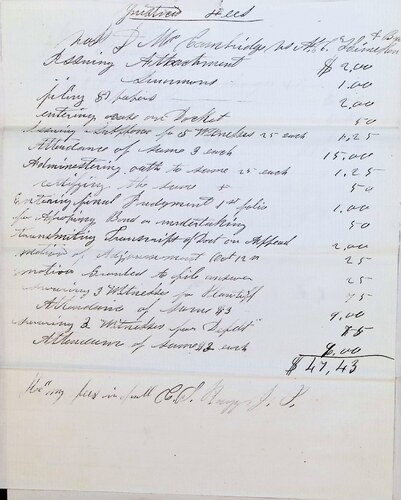 Justices Fees
J. McCambridge vs A. C.
Issuing Attachment $ 2,00
Summons 1.00
filing 8 papers 2,00
entering cause on Docket 50
Issuing Subpoena for 5 Witnesses 25 each 1,25
Attendance of same 3 each 15,00
Administering oath to same 25 each 1,25
certifying the same 50
Entering final Judgment 1st folio 1,00
for Approving Bond or undertaking 50
transmitting Transcript of Doct on Appeal 2,00
motion of Adjournment Oct 12 25
motion Granted to file answer 25
swearing 3 Witnesses for Plaintiff 75
Attendance of Same $3 9,00
swearing 2 Witnesses for Deft
Attendance of same $3 each 6,00
$ 47,43
my fees in full C. S. J. P.